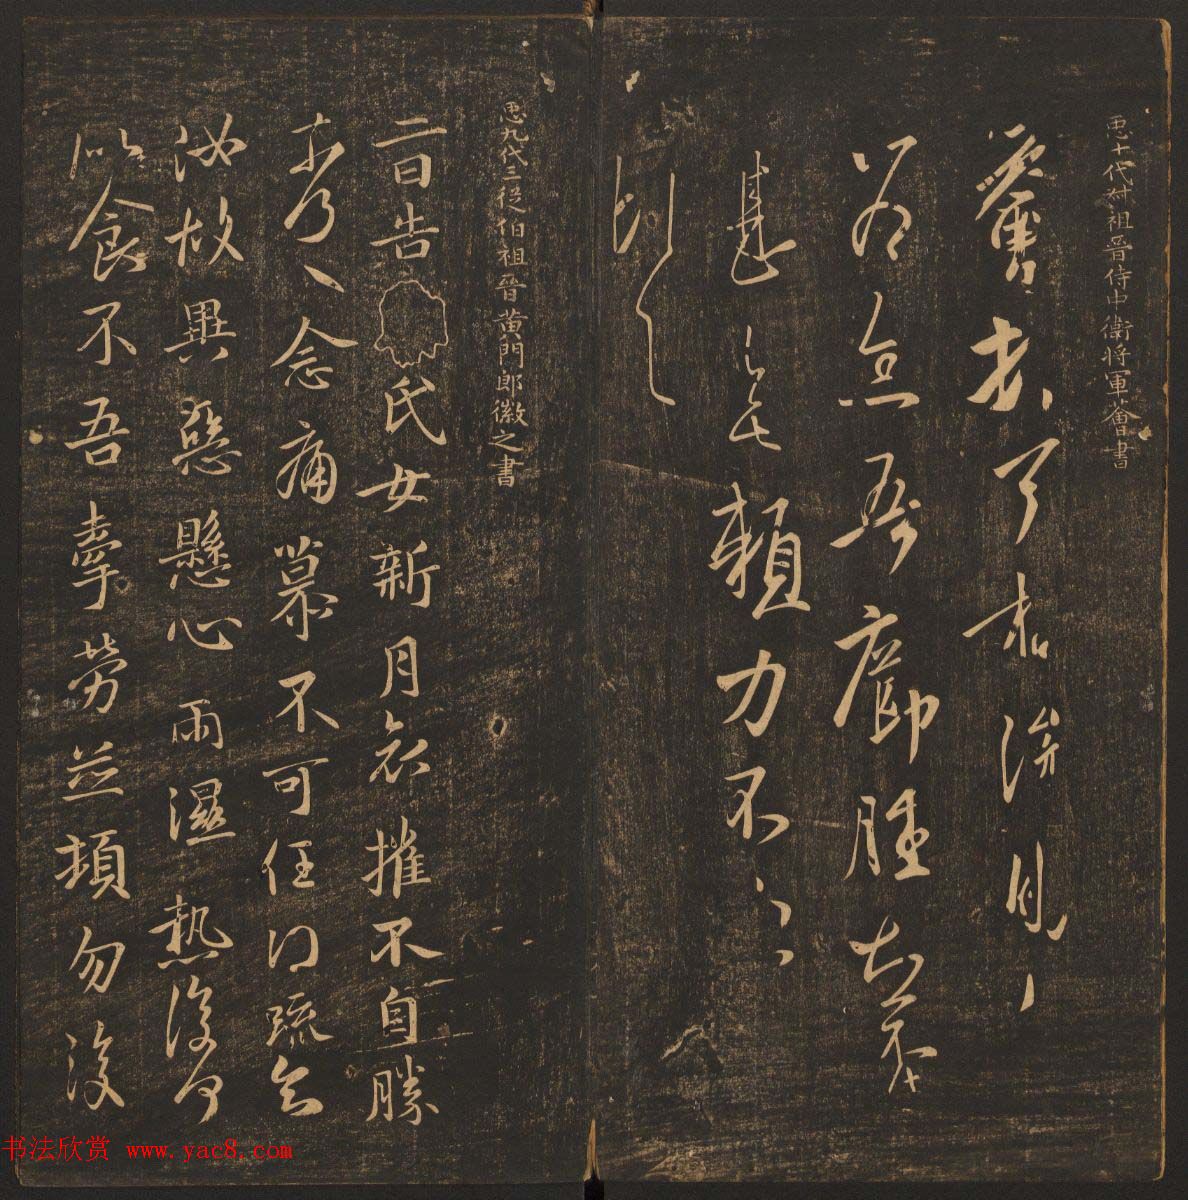 𢘑十代叔祖晉侍中衛將軍薈書
薈
吾癤腫
甚無賴力不一一
𢘑九代三從伯祖晉黃門郎徽之書
二日告氏女新月哀摧不自勝
奈何奈何念痛慕不可任得疏知
汝故異惡懸心雨濕熱復何
似食不吾牽勞並頓勿復
书法欣赏 www.yac8.com